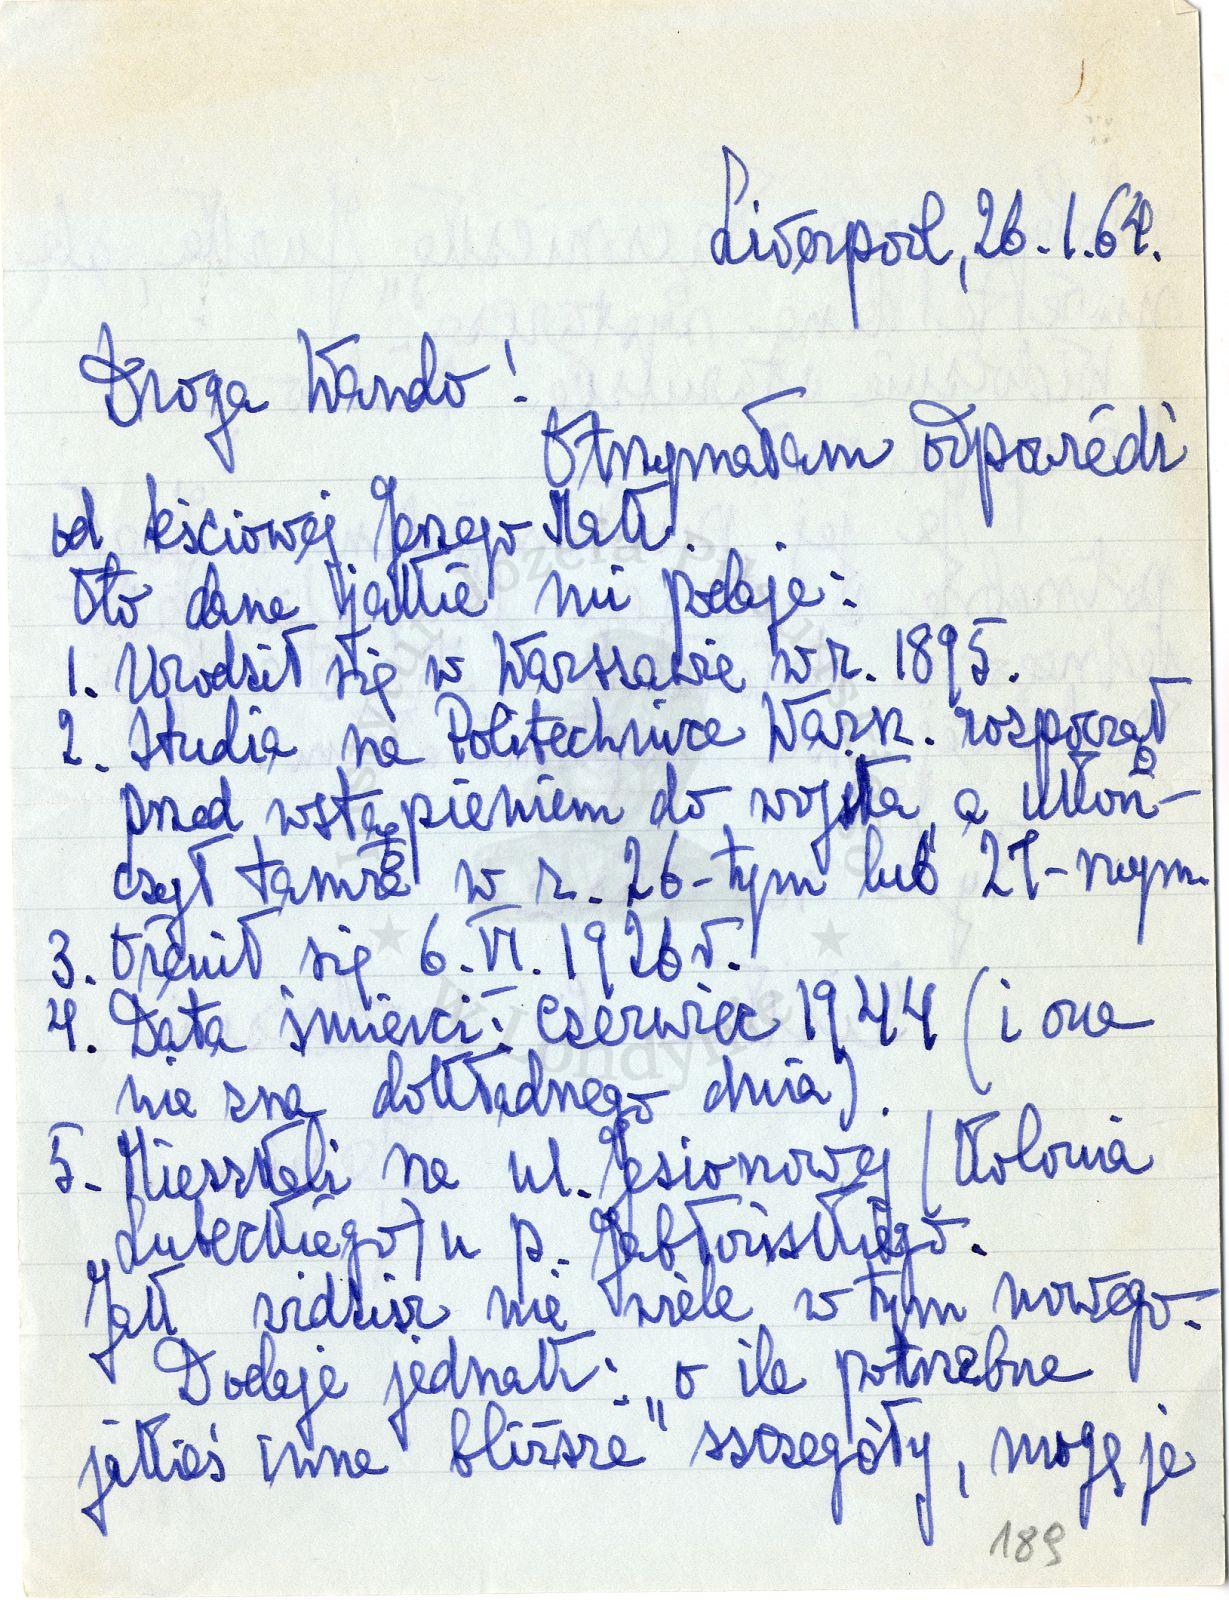 Liverpool, 26.1.64.
Droga Wando!
Otrzymałam odpowiedź
od teściowej Jerzego Mak.
Oto dane jakie mi podaje:
1. Urodził się w Warszawie w r. 1895.
2. Studia na Politechnice Warsz. rozpoczął
przed wstąpieniem do wojska, a ukoń-
czył tamże w r. 26-tym lub 27-mym.
3. Ożenił się 6.VI.1926 r.
4. Data śmierci: czerwiec 1944 (i ona
nie zna dokładnego dnia).
5. Mieszkali na ul. Jesionowej (Kolonia
Lubeckiego) u p. Jabłońskiego.
Jak widzisz nie wiele w tym nowego.
Dodaje jednak: „o ile potrzebne
jakieś inne bliższe" szczegóły, mogę je
189